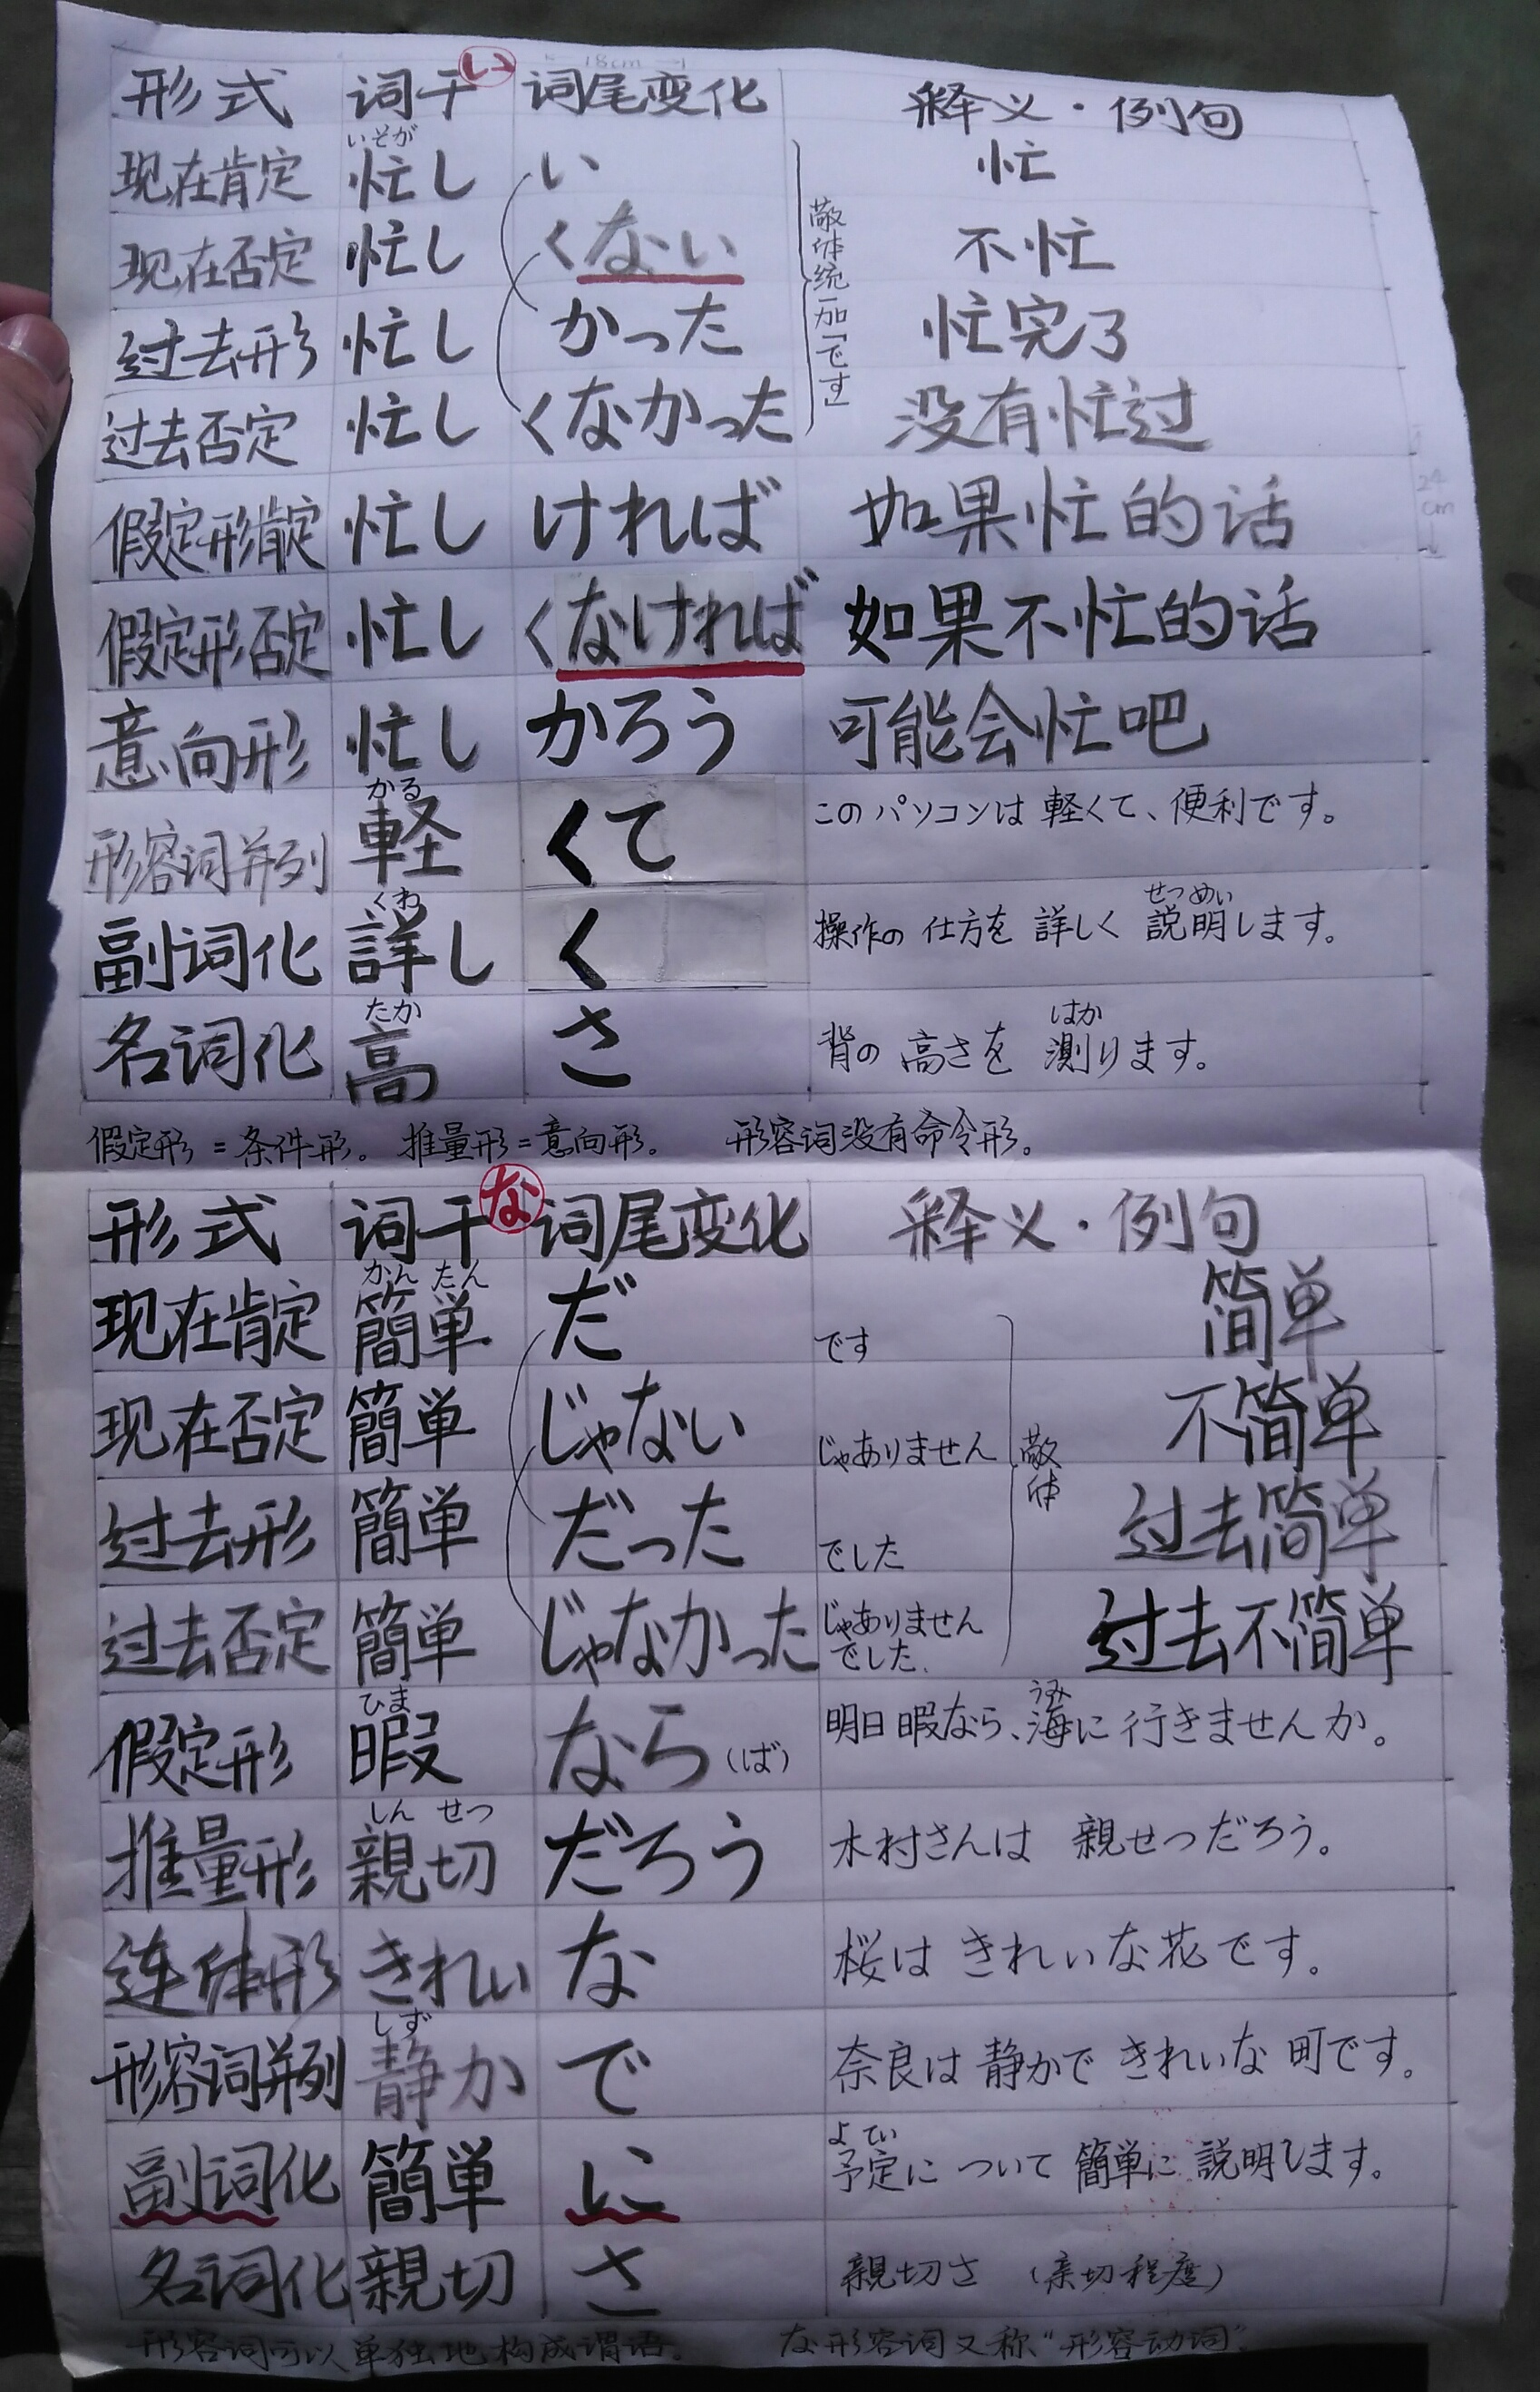 18cm
形式 词干 い 词尾变化 释义·例句
いそが
现在肯定 忙し い 忙
现在否定 忙し くない 不忙
过去形 忙し かった 忙完了
过去否定 忙し くなかった 没有忙过
敬体统一加「です」
假定形肯定 忙し ければ 如果忙的话
24cm
假定形否定 忙し くなければ 如果不忙的话
意向形 忙し かろう 可能会忙吧
かる
形容词并列 軽 くて このパソコンは軽くて、便利です。
くわ せつめい
副词化 詳し く 操作の仕方を詳しく説明します。
たか はか
名词化 高 さ 背の高さを測ります。
假定形=条件形。 推量形=意向形。 形容词没有命令形。
形式 词干 な 词尾变化 释义·例句
かんたん
现在肯定 簡単 だ です 简单
现在否定 簡単 じゃない じゃありません 不简单
敬体
过去形 簡単 だった でした 过去简单
过去否定 簡単 じゃなかった じゃありませんでした. 过去不简单
ひま うみ
假定形 暇 なら(ば) 明日暇なら、海に行きませんか。
しん せつ
推量形 親切 だろう 木村さんは 親せつだろう。
连体形 きれい な 桜は きれいな花です。
しず
形容词并列 静か で 奈良は静かで きれいな町です。
よてい
副词化 簡単 に 予定について 簡単に 説明します。
名词化 親切 さ 親切さ (亲切程度)
形容词可以单独地构成谓语。 な形容词又称“形容动词”.